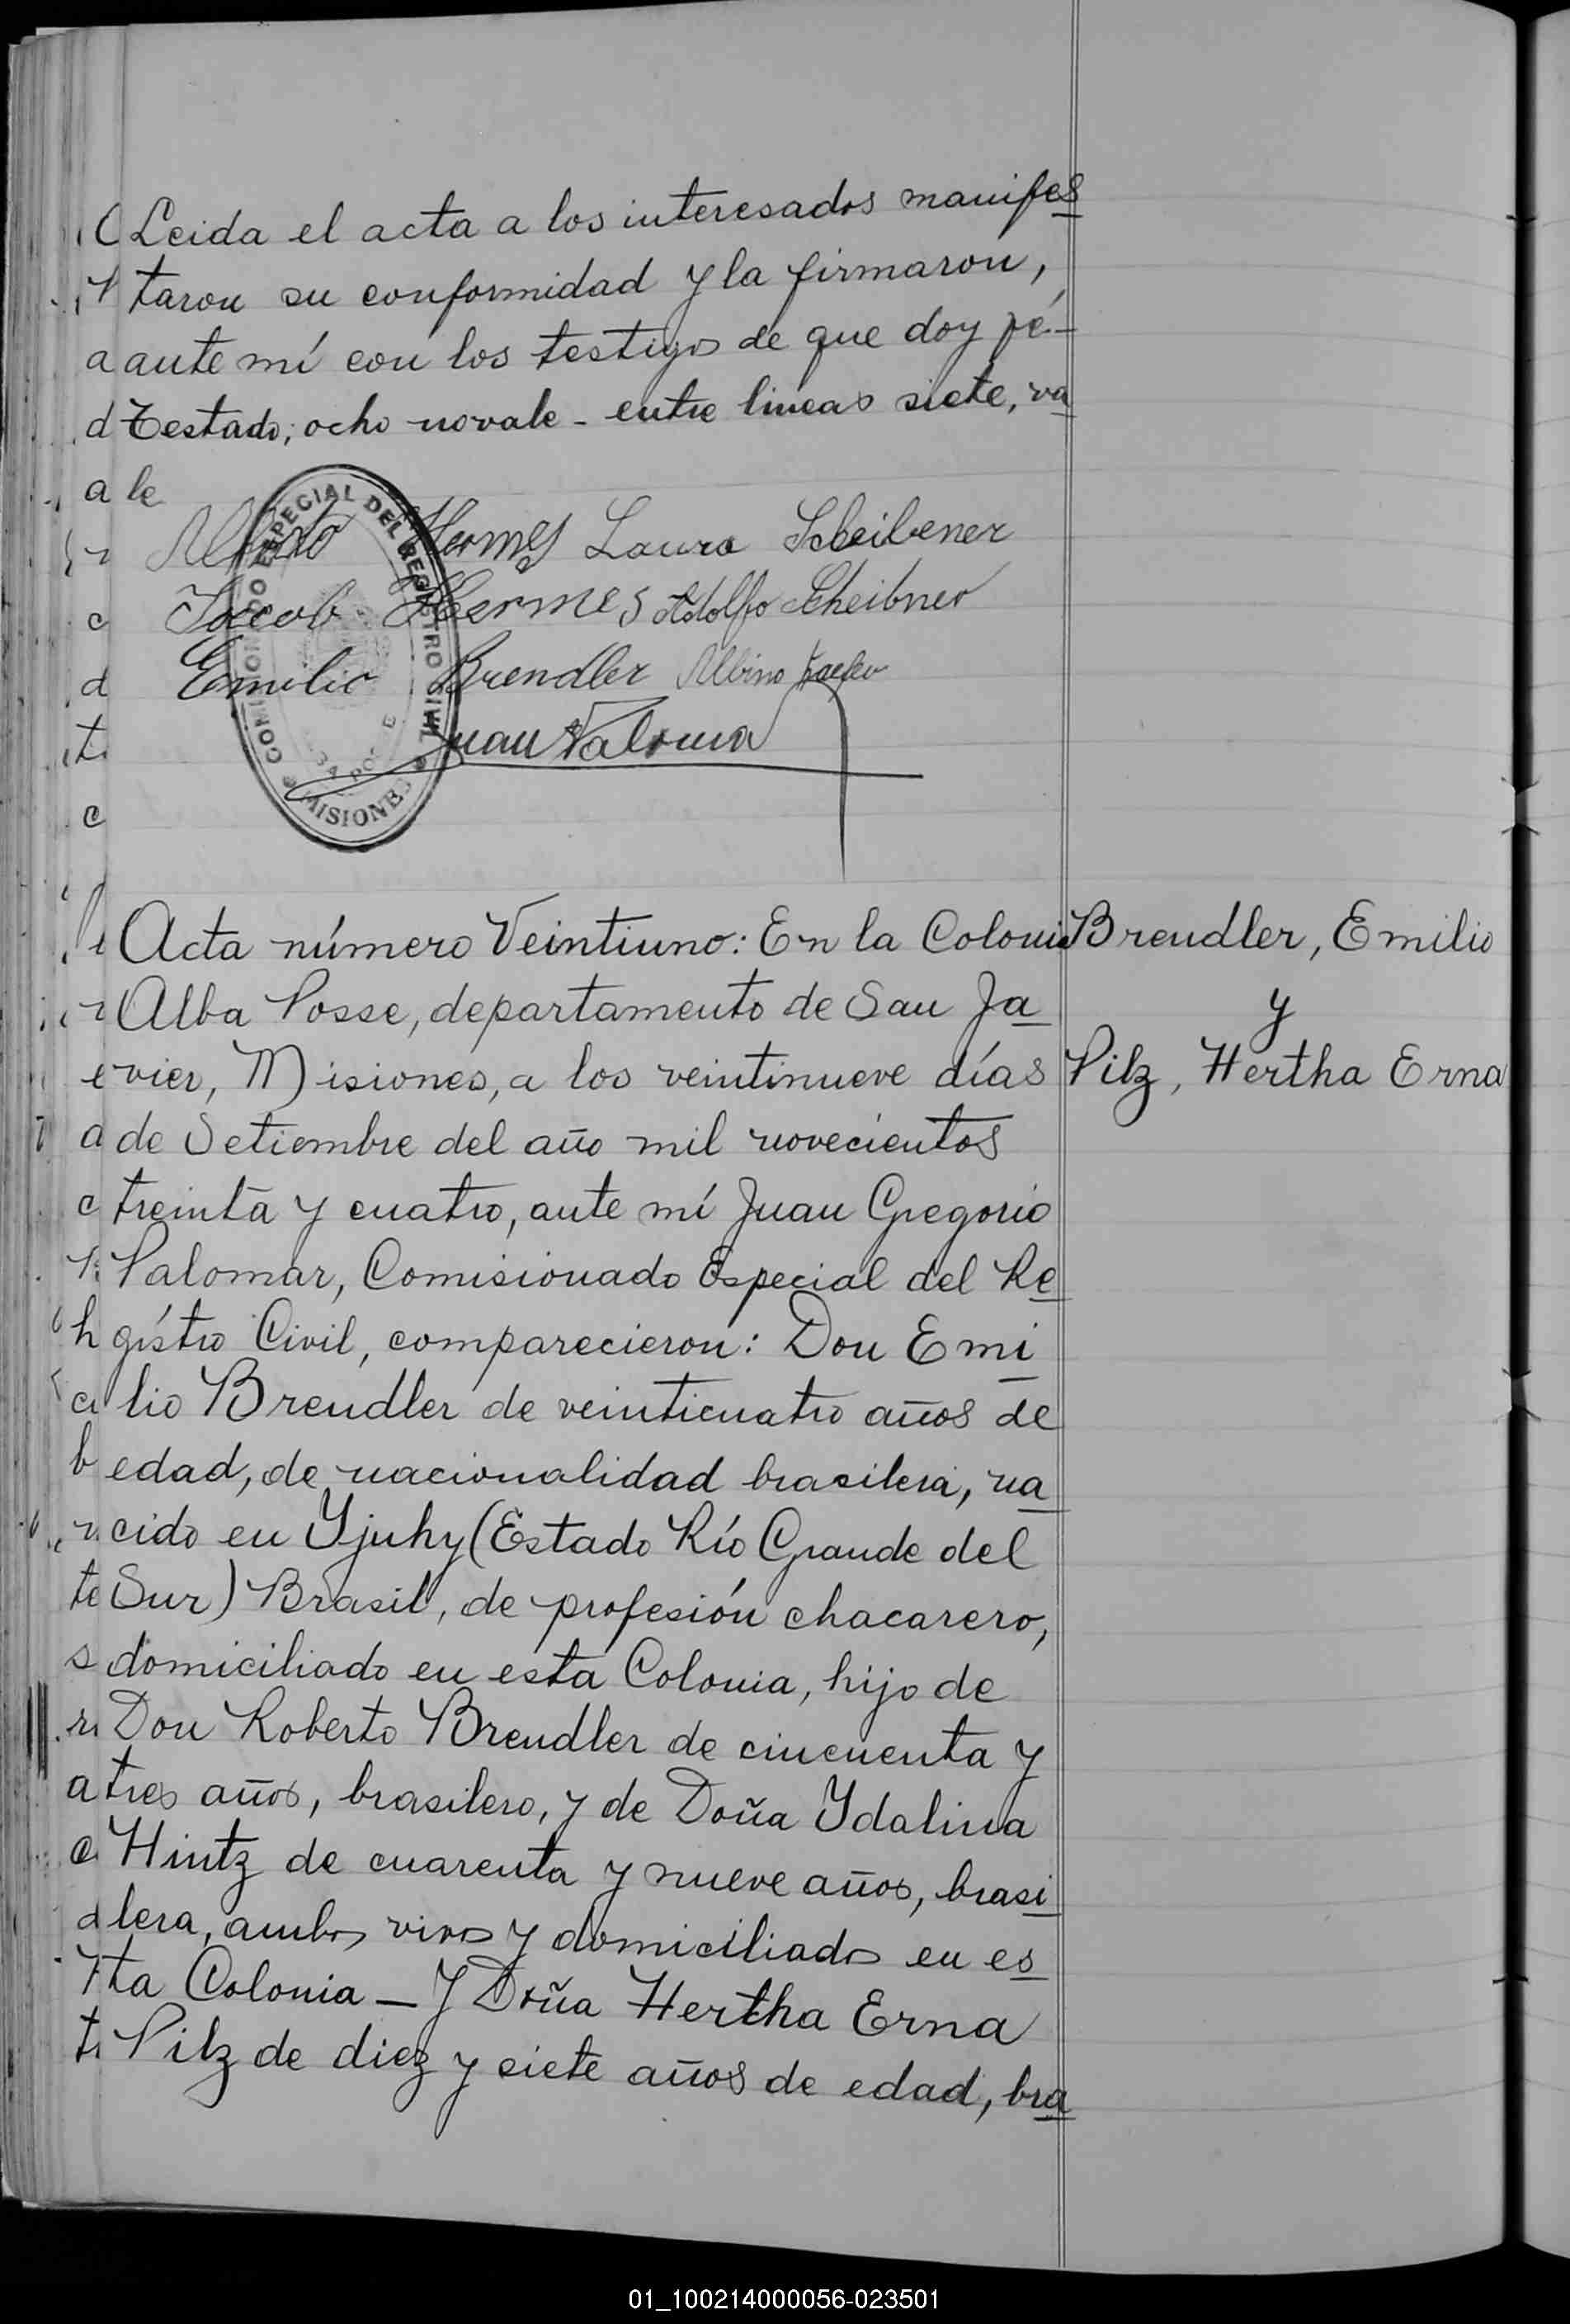 Leida el acta a los interesados manifes
taron su conformidad y la firmaron,
ante mí con los testigos de que doy fé.-
Testado; ocho no vale - entre lineas siete, va
le
Albino Hermes Laura Scheibener
Jacob Hermes Adolfo Scheibner
Emilio Brendler Albino
Juan Paloma
ESPECIAL DEL REGISTRO CIVIL
MISIONES
Acta número Veintiuno: En la Colonia
Brendler, Emilio
Alba Posse, departamento de San Ja
y
vier, Misiones, a los veintinueve días
Pilz, Hertha Erna
de Setiembre del año mil novecientos
treinta y cuatro, ante mí Juan Gregorio
Palomar, Comisionado Especial del Re
gístro Civil, comparecieron: Don Emi
lio Brendler de veinticuatro años de
edad, de nacionalidad brasilera, na
cido en Yjuhy (Estado Río Grande del
Sur) Brasil, de profesión chacarero,
domiciliado en esta Colonia, hijo de
Don Roberto Brendler de cincuenta y
tres años, brasilero, y de Doña Ydalina
Hintz de cuarenta y nueve años, brasi
lera, ambos vivos y domiciliados en es
ta Colonia — Y Doña Hertha Erna
Pilz de diez y siete años de edad, bra
01_100214000056-023501